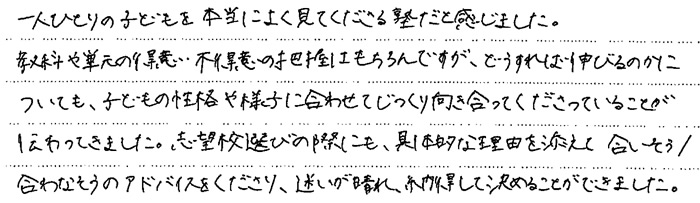 一人ひとりの子どもを本当によく見てくださる塾だと感じました。
教科や単元の得意・不得意の把握はもちろんですが、どうすれば伸びるのかに
ついても、子どもの性格や様子に合わせてじっくり向き合ってくださっていることが
伝わってきました。志望校選びの際にも、具体的な理由を添えて合いそう/
合わなそうのアドバイスをくださり、迷いが晴れ、納得して決めることができました。